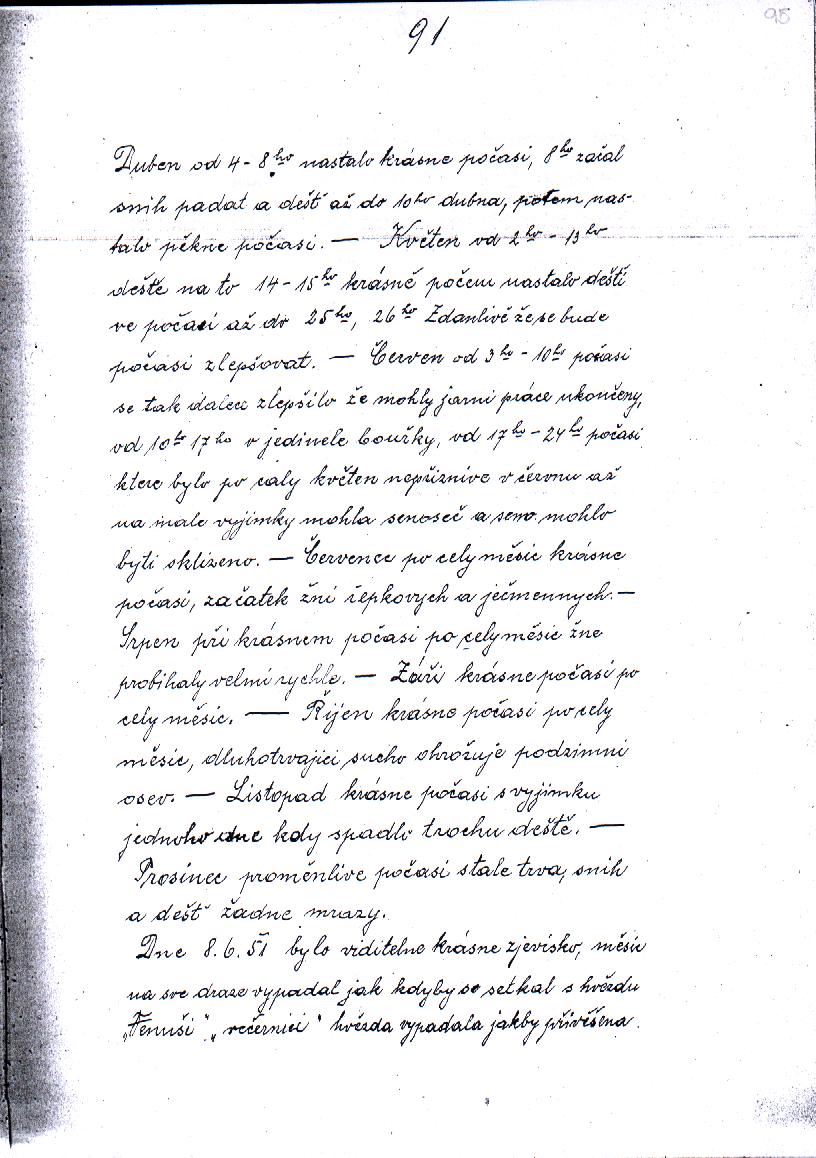 95
91
Duben od 4-8ho nastalo krásne počasi, 8ho začal
snih padat a dešť až do 10ho dubna, potem nas-
talo pěkne počasi. — Květen od 2ho - 13ho
deště na to 14-15ho krásně počem nastalo dešti
ve počasi až do 25ho, 26ho Zdanlivě že se bude
počasi zlepšovat. — Červen od 3ho - 10ho počasi
se tak dalece zlepšilo že mohly jarni práce ukončeny,
od 10ho 17ho v jedinele bouřky, od 17ho - 24ho počasi
ktere bylo po caly květen nepřiznive v červnu až
na male vyjimky mohla senoseč a seno mohlo
byti sklizeno. — Červenec po cely měsic krásne
počasi, začatek žni řepkovych a ječmennych. —
Srpen při krásnem počasi po cely měsic žne
probihaly velmi rychle. — Záři krásne počasi po
cely měsic. — Řijen krásne počasi po cely
měsic, dluhotrvajici sucho ohrožuje podzimni
osev. — Listopad krásne počasi s vyjimku
jednoho dne kdy spadlo trochu deště. —
Prosinec proměnlive počasi stale trva, snih
a dešť žadne mrazy.
Dne 8.6.51 bylo viditelne krásne zjevisko, měsic
na sve draze vypadal jak kdyby se setkal s hvězdu
„Fenuši" „večernici" hvězda vypadala jakby přivěšena